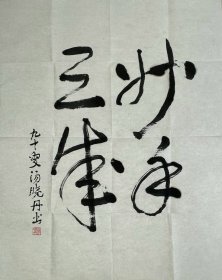 妙手
天成
九十叟汤晓丹书